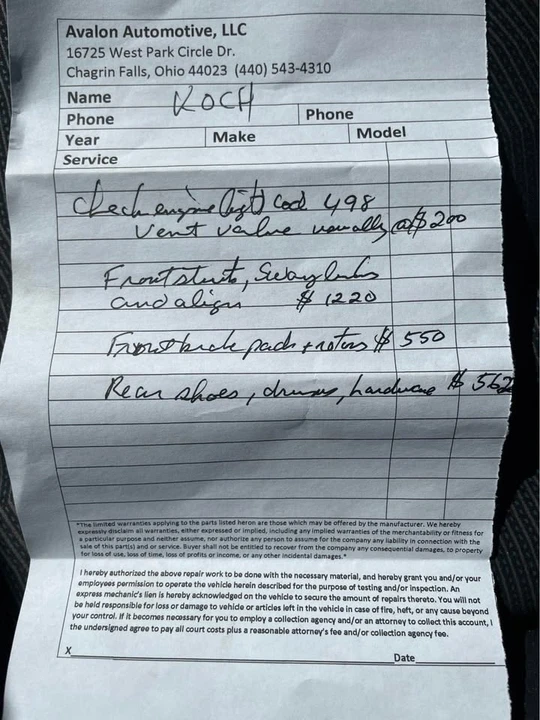 Avalon Automotive, LLC
16725 West Park Circle Dr.
Chagrin Falls, Ohio 44023 (440) 543-4310
Name KOCH
Phone Phone
Year Make Model
Service
Check engine light) Cod 498
Vent valve usually @ $200
Front struts, Sway links
and align $ 1220
Front brake pads + rotors $ 550
Rear shoes, drums, hardware $ 562
*The limited warranties applying to the parts listed heron are those which may be offered by the manufacturer. We hereby
expressly disclaim all warranties, either expressed or implied, including any implied warranties of the merchantability or fitness for
a particular purpose and neither assume, nor authorize any person to assume for the company any liability in connection with the
sale of this part(s) and or service. Buyer shall not be entitled to recover from the company any consequential damages, to property
for loss of use, loss of time, loss of profits or income, or any other incidental damages.*
I hereby authorized the above repair work to be done with the necessary material, and hereby grant you and/or your
employees permission to operate the vehicle herein described for the purpose of testing and/or inspection. An
express mechanic's lien is hereby acknowledged on the vehicle to secure the amount of repairs thereto. You will not
be held responsible for loss or damage to vehicle or articles left in the vehicle in case of fire, heft, or any cause beyond
your control. If it becomes necessary for you to employ a collection agency and/or an attorney to collect this account, I
the undersigned agree to pay all court costs plus a reasonable attorney's fee and/or collection agency fee.
X Date